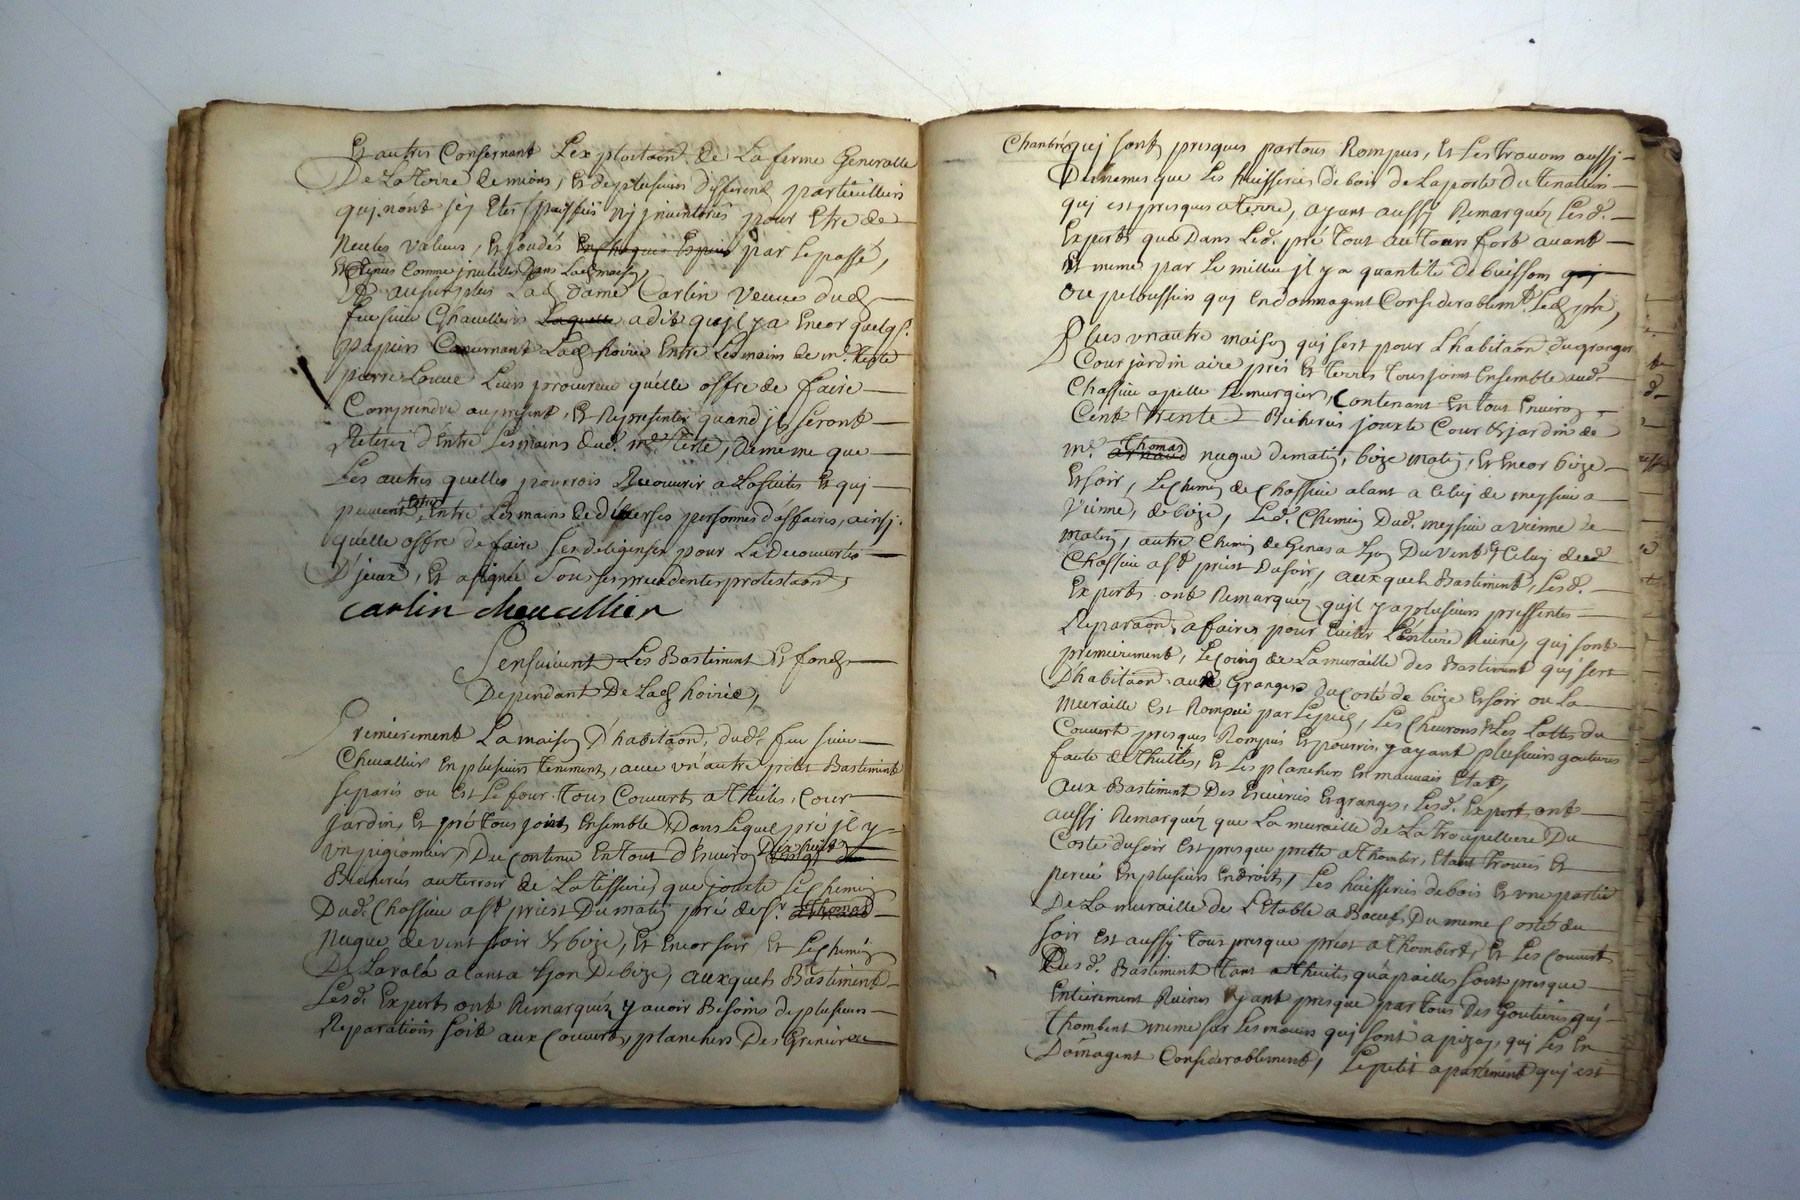 Et autres Consernant L'exploitaôn de La ferme Generalle
De La Terre de mions, Et de plusieurs differend particulliers
quj nont sej Etes nj jnventories pour Etre de
Nulles valleurs, Et soudés En Chaques Espeues par Le passé,
Et Tenus Comme jnutilles Dans Lad maison,
Et au surplus Lad Dame Carlin Veuve dud
feu sieur Chevallier Laquelle a dit qujl y a Encor quelqs.
papiers Concernant Lad hoirie Entre Les mains de mr. Terte
pierre Louue Leur procureur qu'elle offre de faire
Comprendre au présent, Et Representer quand jls seront
Retires d'Entre Les mains dud. mr. Terte, De meme que
Les autres quelles pourrois Recouvrir a La suites Et quj
peuvent Estre Entre Les mains de diverses personnes d'affaires, ainsj.
qu'elle offre de faire ses deligenses pour La Decouverte
D'jeux, Et a signée Sous ses precedentes protestaôns,
carlin cheuallier
Sensuivent Les Bastiment Et fonds
Dependant De Lad hoirie,
Premierement La maison D'habitaôn, dud. feu sieur
Chevallier En plusieurs tenement, avec vn autre petit Bastiment
separés ou Est Le four. Tous Couverts a Thuiles, Cour
jardin, Et pré Tous joint Ensemble, Dans Lequel pré jl y
vn pigionnier, Du Contenu En Tout d'Environ Dix huit
Bicherés au terroir de La Tissiere, que jouxte Le Chemin
Dud. Chassieu a St priest Du matin pré de sr. Thomas
Nugue de vent soir & bize, Et Encor soir Et Le Chemin
De Lavala alant a Lyon De bize, auxquels Bastiment
Lesd. Expert ont Remarquéz y avoir Besoins de plusieurs
Reparations soit aux Couverts, planchers Des Greniers &
Chambres quj sont presques partous Rompus, Et Les Travons aussj
De memes que Les huisseries De bois de La porte Du Tenallier
quj est presques a terre, ayant aussy Remarquéz Lesd.
Experts que Dans Led. pré Tout au Tours fort avant
Et meme par Le millieu jl y a quantité De buissons quj
ou peloussiers quj Endommagent Considerablemt. Led pré,
Plus vn autre maison quj sert pour L'habitaôn du granger
Cour jardin aire prés Et Terres Tous joint Ensemble aud.
Chassieu apellé Le murgier, Contenant En tout Environ
Cent Trente Bicherées jouxte Cour & jardin de
mr. Thomas nugue de matin, bize matin, Et Encor bize
Et soir, Le Chemin de Chassieu alant a Celuj de meysieu a
Vienne, de bize, Led. Chemin Dud. meysieu a vienne de
matin, autre Chemin de Genas a Lyon Du vent Et Celuj dud
Chassieu a St. priest Du soir, aux quels Bastiment, Lesd.
Experts ont Remarquéz qujl y a plusieurs pressentes
Reparaôns, a faires pour Eviter L'entiere Ruine, quj sont
premierement, Le Coing de La muraille des Bastiment quj sert
D'habitaôn aud Granger du Costé de bize Et soir ou La
muraille Est Rompue par Le pied, Les Chevrons & Les Lattes du
Couvert presques Rompus Et pourris, y ayant plusieurs goutieres
faute de Thuilles, Et Les planchers En mauvais Etat,
Aux Bastiment Des Escuries Et granges, Lesd. Expert ont
aussj Remarquéz que La muraille de La Troupelliere Du
Costé du soir Est presque preste a Thomber, Etant Trouée Et
percée En plusieurs Endroits, Les huisseries de bois Et vne partie
De La muraille de L'Etable a Boeuf Du meme Costé du
soir Est aussy Tous presque prest a Thombert, Et Les Couvert
Desd. Bastiment Tant a Thuiles qu'a pailles sont presque
Entierement Ruines, ayant presque par Tous Des Goutieres quj
Thombent meme sur Les mours quj sont a pizay, quj Les En
Domagent Considerablement, Le petit apartement quj est